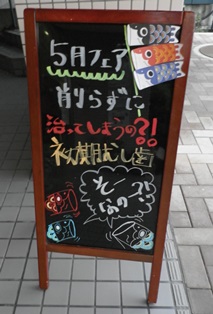 5月フェア
削らずに
治ってしまうの?!
初期むし歯
そーゾ
なの